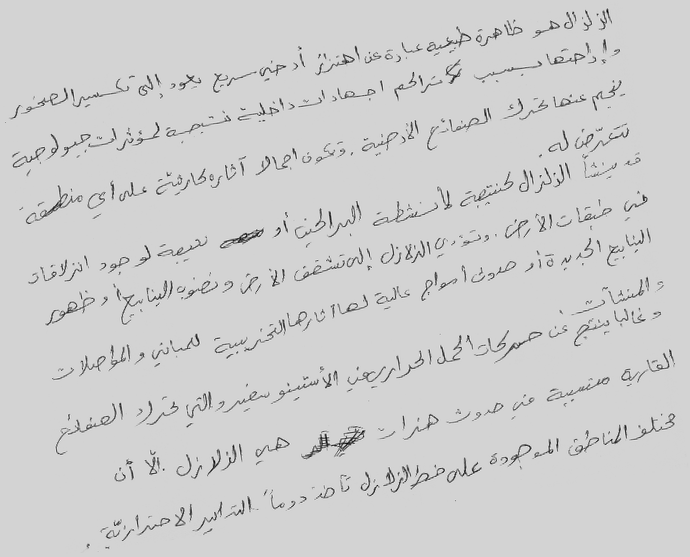 الزلزال هو ظاهرة طبيعية عبارة عن اهتزاز أرضي سريع يعود إلى تكسير الصخور
وإزاحتها بسبب تراكم اجهادات داخلية نتيجة لمؤثرات جيولوجية
ينجم عنها تحرك الصفائح الأرضية. وتكون اجمالا آثاره كارثيّة على أي منطقة
تتعرّض له.
قد ينشأ الزلزال كنتيجة لأنشطة البراكين أو نتيجة لوجود انزلاقات
في طبقات الأرض. وتؤدي الزلازل إلى تشقق الأرض ونضوب الينابيع أو ظهور
الينابيع الجديدة أو حدوث أمواج عالية لها آثارها التخريبية للمباني والمواصلات
والمنشآت
وغالبا ينتج عن حركات الحمل الحراري في الأستينوسفير والتي تحرك الصفائح
القارية متسببة في حدوث هزات هي الزلازل. إلّا أن
مختلف المناطق الموجودة على خط الزلازل تأخذ دوماً التدابير الاحترازيّة.